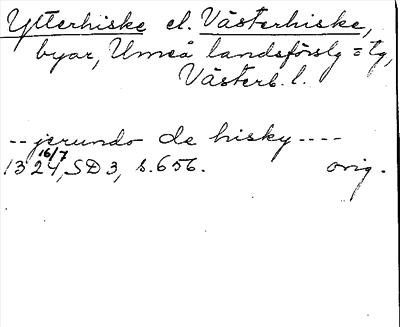 Ytterhiske el. Västerhiske,
byar, Umeå landsförslg = tg,
Västerb. l.
-- jerundo de hisky ----
16/7
1324, SD 3, s. 656. orig.